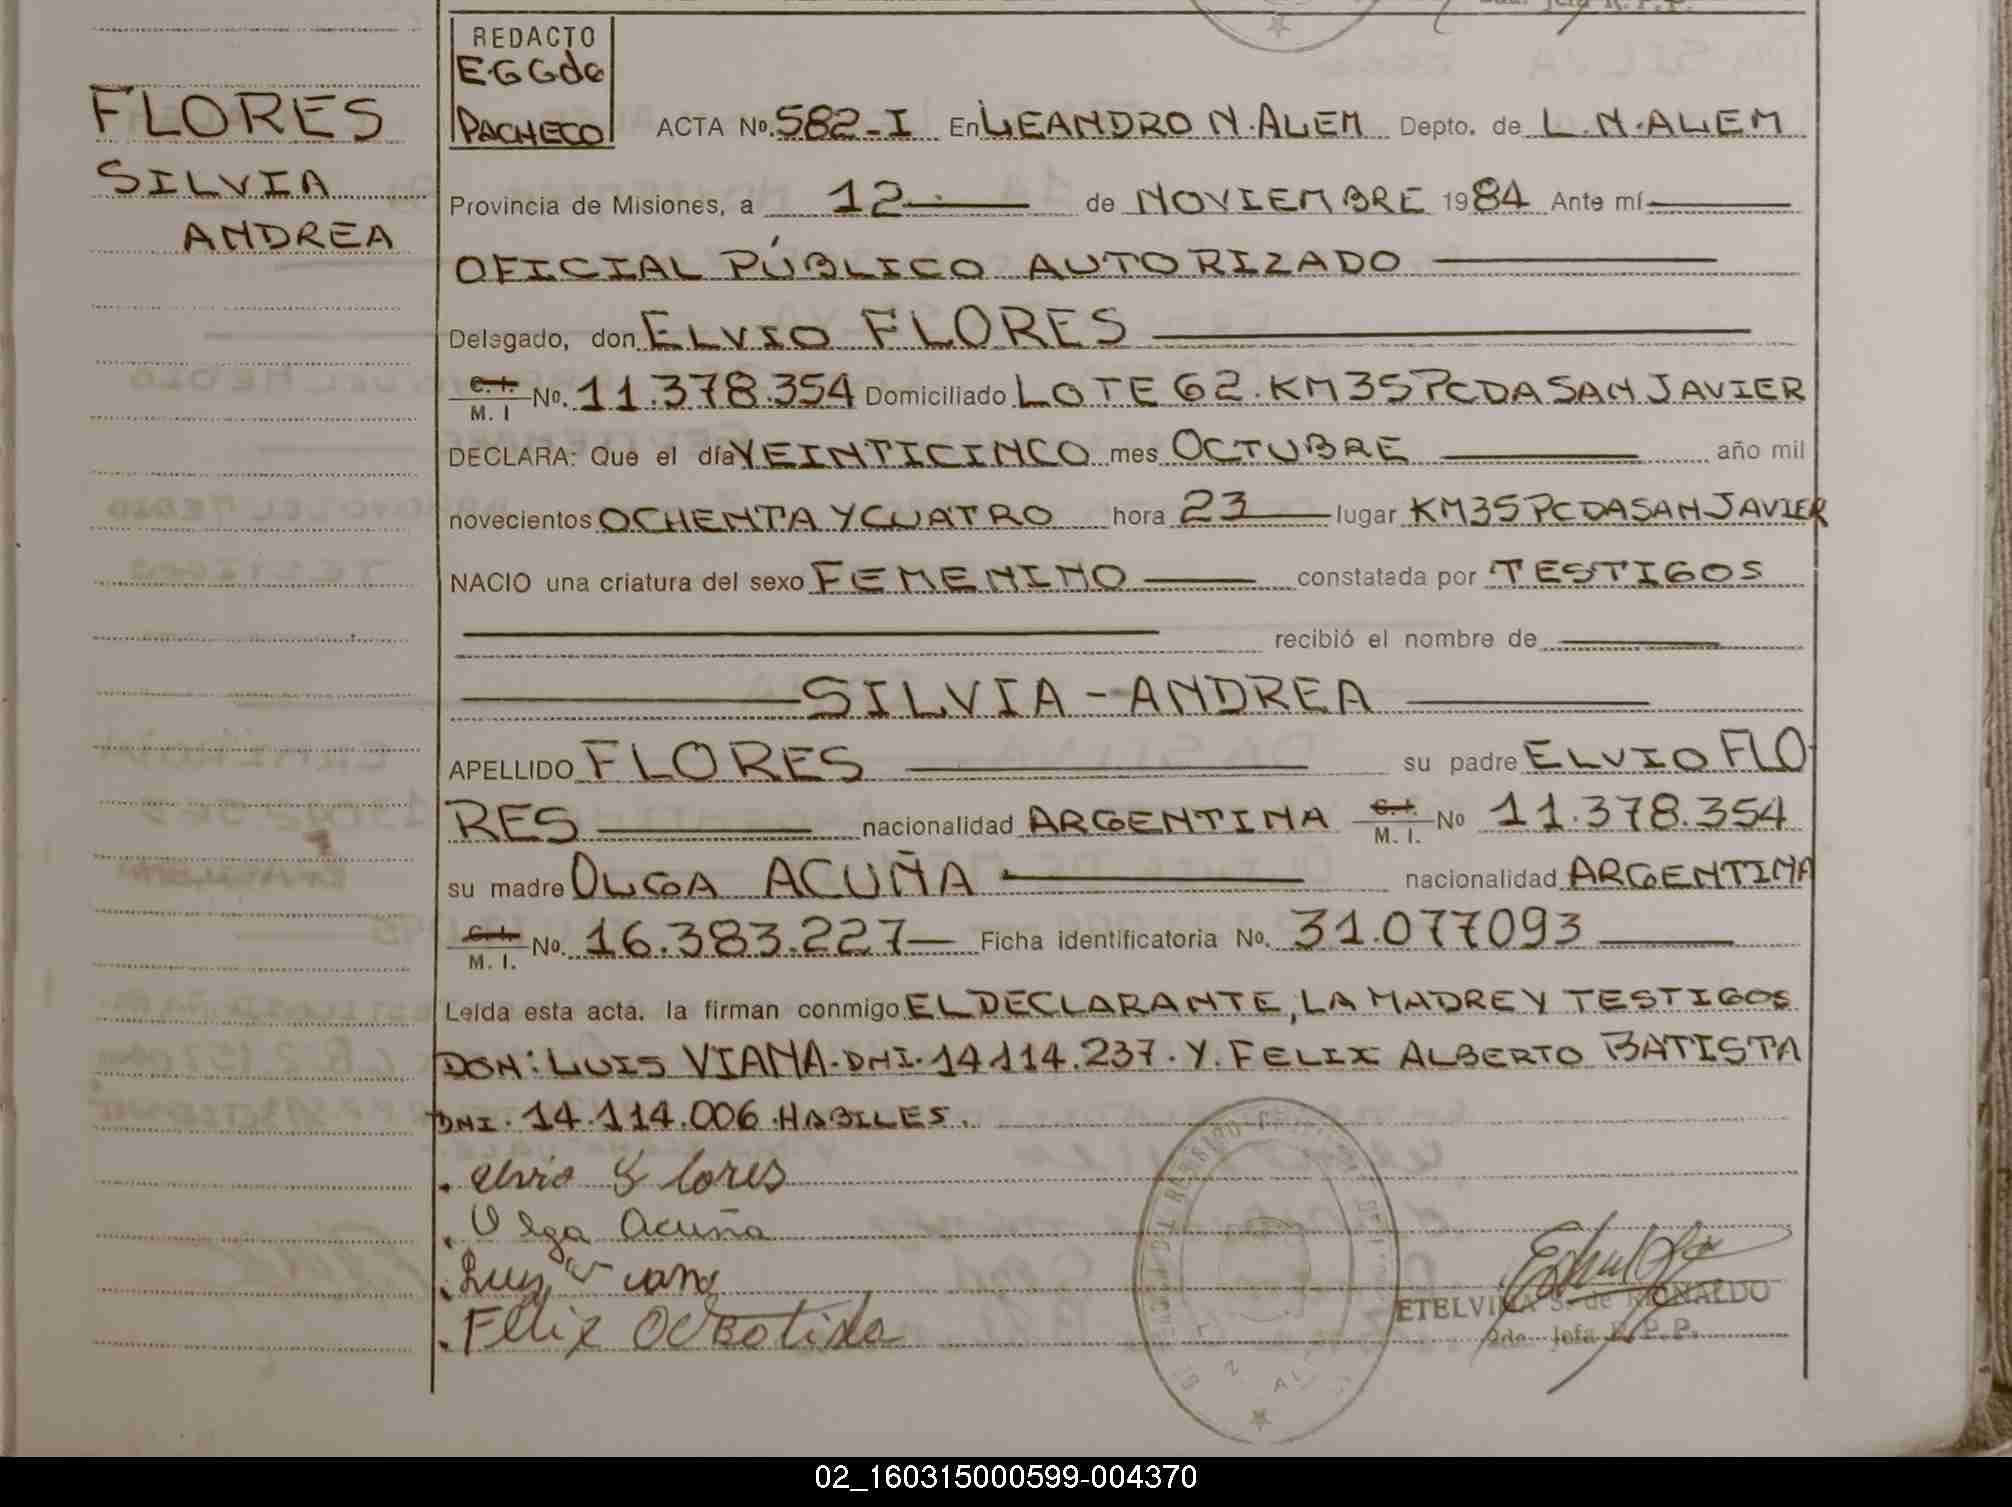 REDACTO
E.G G de
PACHECO
FLORES
SILVIA
ANDREA
ACTA Nº. 582-I En LEANDRO N. ALEM Depto. de L.N. ALEM
Provincia de Misiones, a 12 de NOVIEMBRE 1984 Ante mí
OFICIAL PÚBLICO AUTORIZADO
Delegado, don ELVIO FLORES
C. I. M. I Nº. 11.378.354 Domiciliado LOTE 62. KM 35 PCDA SAN JAVIER
DECLARA: Que el día VEINTICINCO mes OCTUBRE año mil
novecientos OCHENTA Y CUATRO hora 23 lugar KM 35 PCDA SAN JAVIER
NACIO una criatura del sexo FEMENINO constatada por TESTIGOS
recibió el nombre de
SILVIA - ANDREA
APELLIDO FLORES su padre ELVIO FLO
RES nacionalidad ARGENTINA C. I. M. I. Nº 11.378.354
su madre OLGA ACUÑA nacionalidad ARGENTINA
C. I. M. I. Nº. 16.383.227 Ficha identificatoria Nº. 31.077093
Leída esta acta. la firman conmigo EL DECLARANTE, LA MADRE Y TESTIGOS
DON: LUIS VIANA. DNI. 14114.237. Y. FELIX ALBERTO BATISTA
DNI. 14.114.006. HABILES.
Elvio Flores
Olga Acuña
Luis Viana
Felix
ETELVINA S. de MONALDO
2da. Jefa R.P.P.
02_160315000599-004370